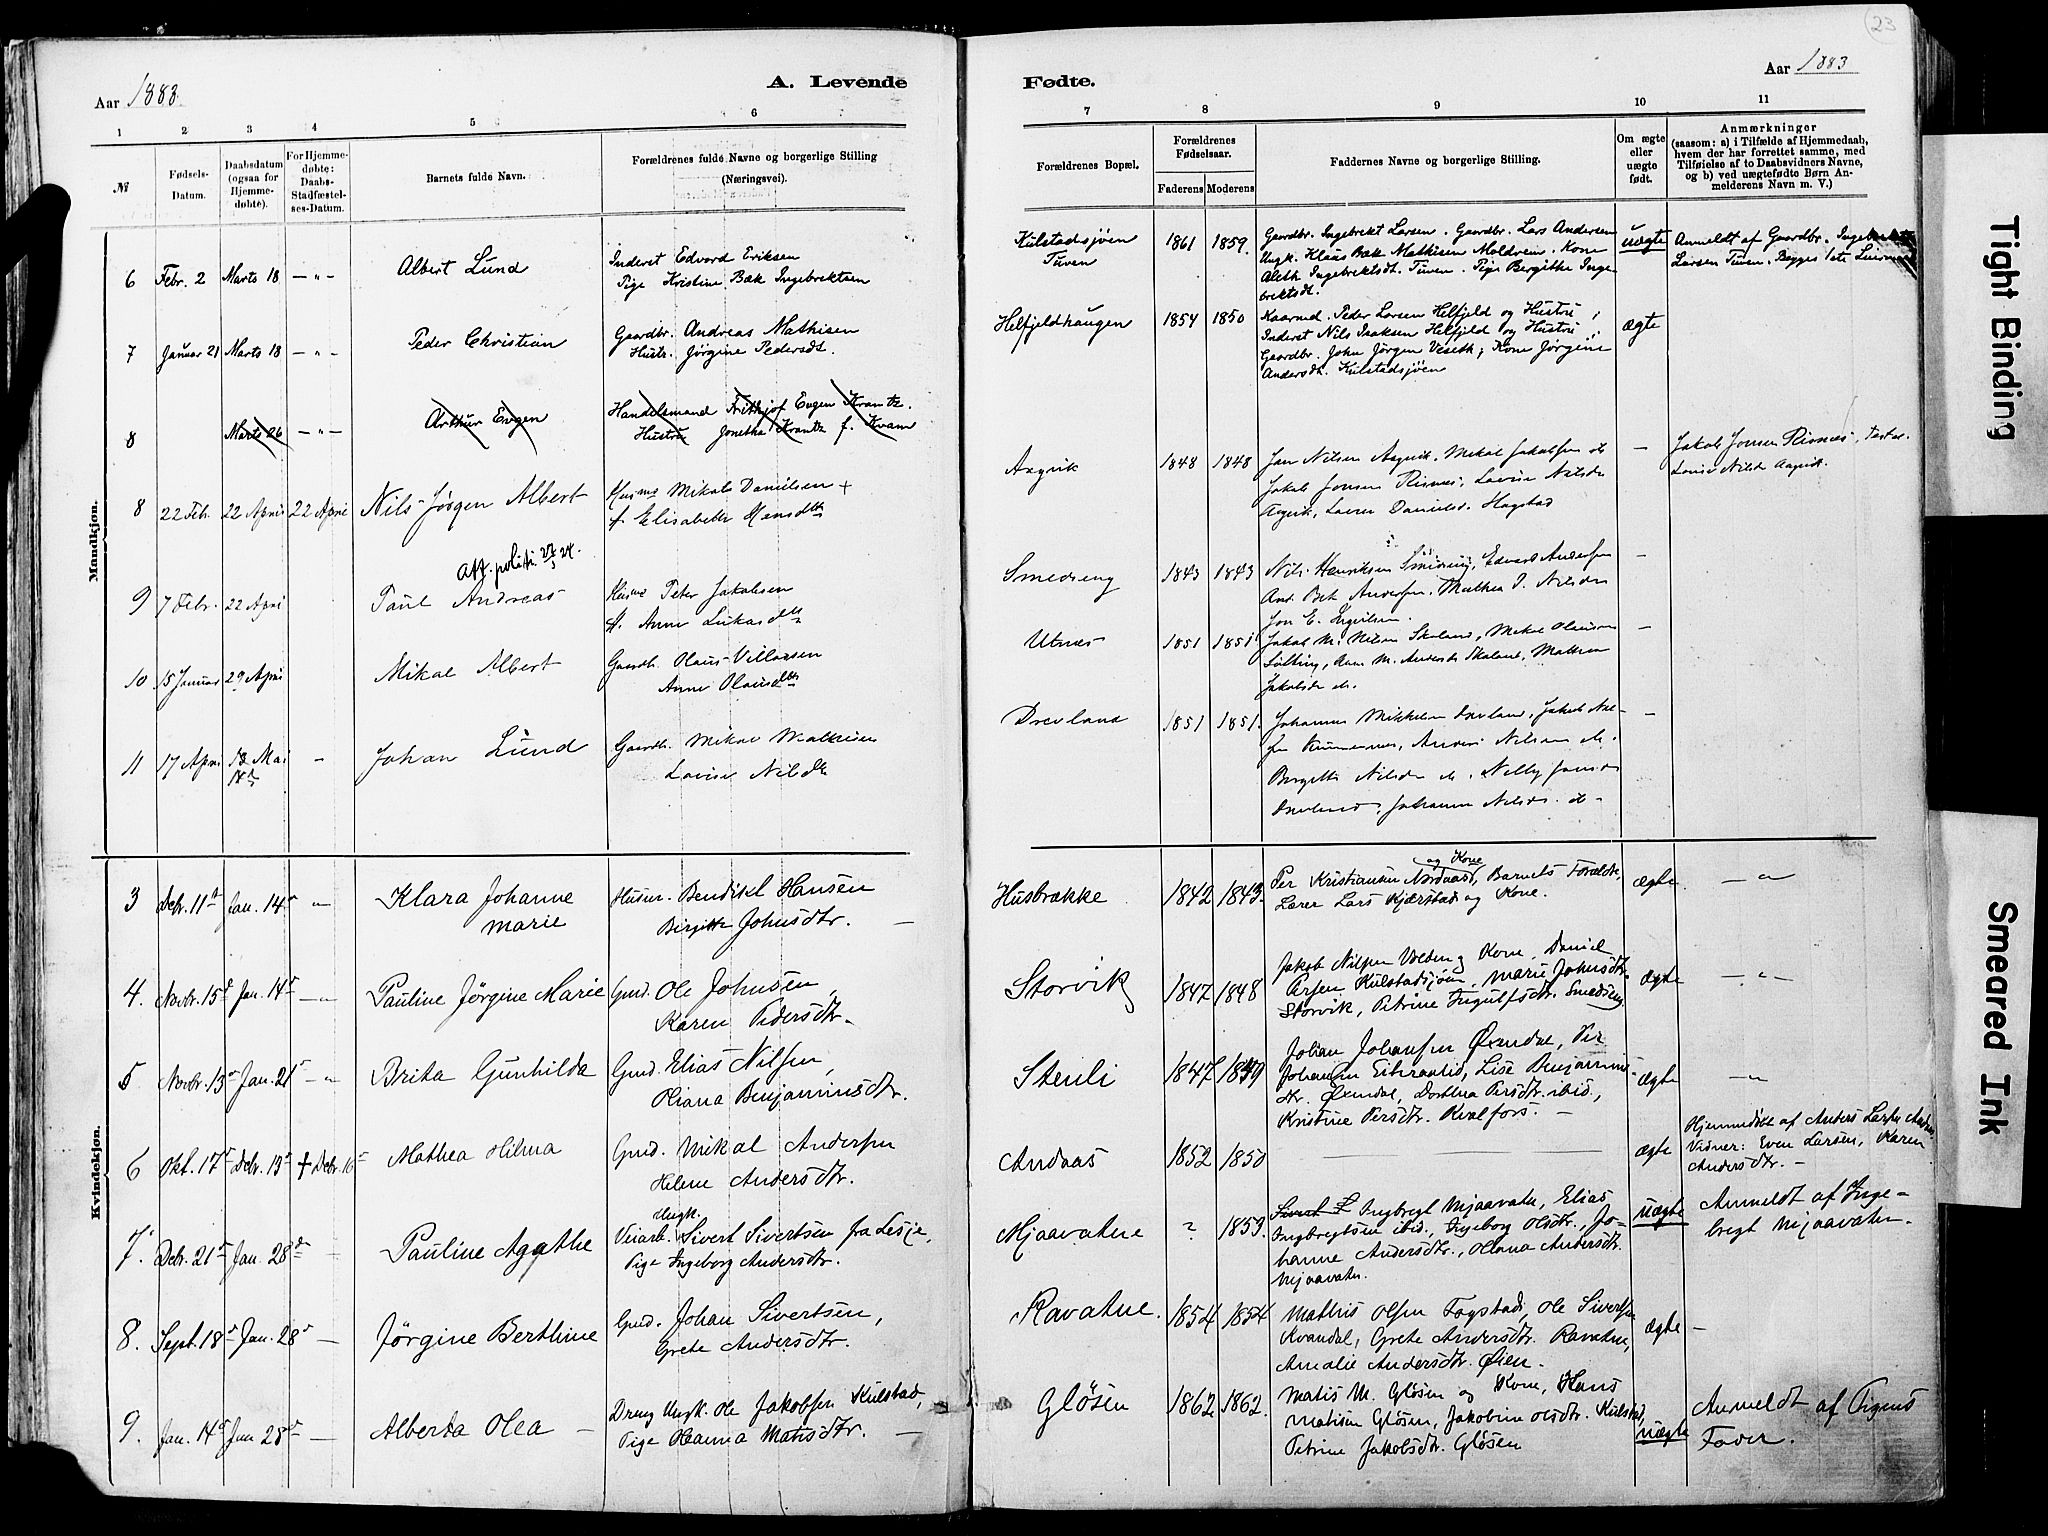 23
Aar 1883.
A. Levende
Fødte.
Aar 1883
1 2 3 4 5 6
7 8 9 10 11
№
Fødsels-
Datum.
Daabsdatum
(ogsaa for
Hjemme-
døbte).
For Hjemme-
døbte:
Daabs-
Stadfæstel-
ses-Datum.
Barnets fulde Navn.
Forældrenes fulde Navne og borgerlige Stilling
(Næringsvei).
Forældrenes Bopæl.
Forældrenes
Fødselsaar.
Faderens Moderens
Faddernes Navne og borgerlige Stilling.
Om ægte
eller
uægte
født.
Anmærkninger
(saasom: a) i Tilfælde af Hjemmedaab,
hvem der har forrettet samme, med
Tilføielse af to Daabsvidners Navne,
og b) ved uægtefødte Børn An-
melderens Navn m. V.)
Mandkjøn.
6 Febr. 2 Marts 18 — „ — Albert Lund
Inderst Edvard Eriksen
Pige Kristine Bak Ingebrektsen
Kulstadsjøen
Tuven
1861 1859.
Gaardbr. Ingebrekt Larsen. Gaardbr. Lars Andersen
Ungk. Klaus Bak Mathisen Moldrem. Kone
Aleth Ingebrektsdt. Tuven. Pige Bergithe Inge-
brektsdt.
uægte
Anmeldt af Gaardbr. Ingebrekt
Larsen Tuven. Begges 1ste
7 Januar 21 Marts 18 — „ — Peder Christian
Gaardbr. Andreas Mathisen
Hustr. Jørgine Pedersdt.
Helfjeldhaugen
1854 1850
Kaarmd. Peder Larsen Helfjeld og Hustru;
Inderst Nils Isaksen Helfjeld og Hustru;
Gaardbr. John Jørgen Veseth; Kone Jørgine
Andersdt. Kulstadsjøen
ægte
8 Marts 26 — „ — Arthur Evgen
Handelsmand Frithjof Evgen Krantz.
Hustru Jonetha Krantz f. Kvam
8 22 Feb. 22 April 22 April Nils Jørgen Albert
Husmd Mikal Danielsen +
f Elisabeth Hansdtr
Aagvik
1848 1848
Jon Nilsen Aagvik. Mikal Jakobsen ds
Jakob Jonsen Risnæs, Lovise Nilsdr
Aagvik, Laura Danielsd. Hagstad
—
Jakob Jonsen Risnæs, test.
Lovise Nilsdr Aagvik.
Att. politi 27/5 24.
9 7 Febr. 22 April Paul Andreas
Husmd Peter Jakobsen
H. Anne Lukasdtr
Smedseng
1843 1843
Nils Henriksen Smedseng, Edvard Andersen
Ant. Bet. Andersen. Mathea P. Nilsdr
Jon E. Ingulsen.
—
10 15 Januar 29 April Mikal Albert
Gaardb. Olaus Villassen
Anne Olausdtr
Utnæs
1851 1851
Jakob M. Nilsen Skoland, Mikal Olausen
Sølting, Ane M. Andersdr Skoland, Mathea
Jakobsdr ds.
—
11 17 April 13 Mai — Johan Lund
Gaardb. Mikal Mathisen
Lovise Nilsdtr
Drevland
1851 1851.
Johannes Mikkelsen Drevland, Jakob Nil-
sen , Anders Nilsen ds.
Bergitte Nilsdr ds. Nelly Jonsdr
Drevland, Johanna Nilsdr. ds
—
Kvindekjøn.
3 Debr. 11te Jan. 14de „ Klara Johanne
Marie
Husm. Bendikt Hansen
Birgitte Johnsdtr. —
Husbrække
1842 1843.
og Kone
Per Kristiansen Nordaas, Barnets Forældre,
Lærer Lars Kjærstad og Kone.
ægte.
— „ —
4. Novbr. 15de Jan. 14de — „ Pauline Jørgine Marie
Gmd. Ole Johnsen,
Karen Pedersdtr.
Storvik
1847 1848
Jakob Nilsen Velden og Kone, Daniel
Arsen Kulstadsjøen, Marie Johnsdtr.
Storvik, Petrine Ingulfsdtr. Smedseng
ægte
— „ —
5 Novbr. 13de Jan. 21de — „ Brita Gunhilda
Gmd. Elias Nilsen,
Oliana Benjaminsdtr.
Stenli
1847 1849
Johan Johansen Øxendal, Per
Johansen Eiteraalid, Lise Benjamins-
dtr. Øxendal, Dorthea Persdtr. ibid.,
Kristine Persdtr. Kvalfors. —
ægte
— „ —
6 Okt. 17de Debr. 13de + Debr. 16de Mathea Hilma
Gmd. Mikal Andersen
Helene Andersdtr.
Andaas
1852 1850
—
ægte
Hjemmedøbt af Anders Larsen Andaas
Vidner: Even Larsen, Karen
Andersdtr. —
7. Debr. 21de Jan. 28de — Pauline Agathe
Ungk.
Veiarb. Sivert Sivertsen fra Lesje,
Pige Ingeborg Andersdtr.
Mjaavatne
? 1853.
Ingbregt Mjaavatn, Elias
Ingbregtsen ibid., Ingeborg Olsdtr., Jo-
hanne Andersdtr., Oliana Andersdtr.
Mjaavatn.
uægte
Anmeldt af Inge-
bregt Mjaavatn.
8. Sept. 18de Jan. 28de — Jørgine Berthine
Gmd. Johan Sivertsen,
Grete Andersdtr.
Ravatne.
1854 1854
Mathis Olsen Fagstad, Ole Sivertsen
Kvandal, Grete Andersdtr. Ravatne,
Amalie Andersdtr. Øien.
ægte
—
9. Jan. 14de Jan 28de — Alberta Olea —
Dreng Ungk. Ole Jakobsen Kulstad,
Pige Oleanna Matisdtr. —
Gløsen
1862 1862.
Matis M. Gløsen og Kone, Hans
Matisen Gløsen, Jakobine Olsdtr. Kulstad,
Petrine Jakobsdtr. Gløsen
uægte
Anmeldt af Pigens
Fader.
Tight Binding
Smeared Ink